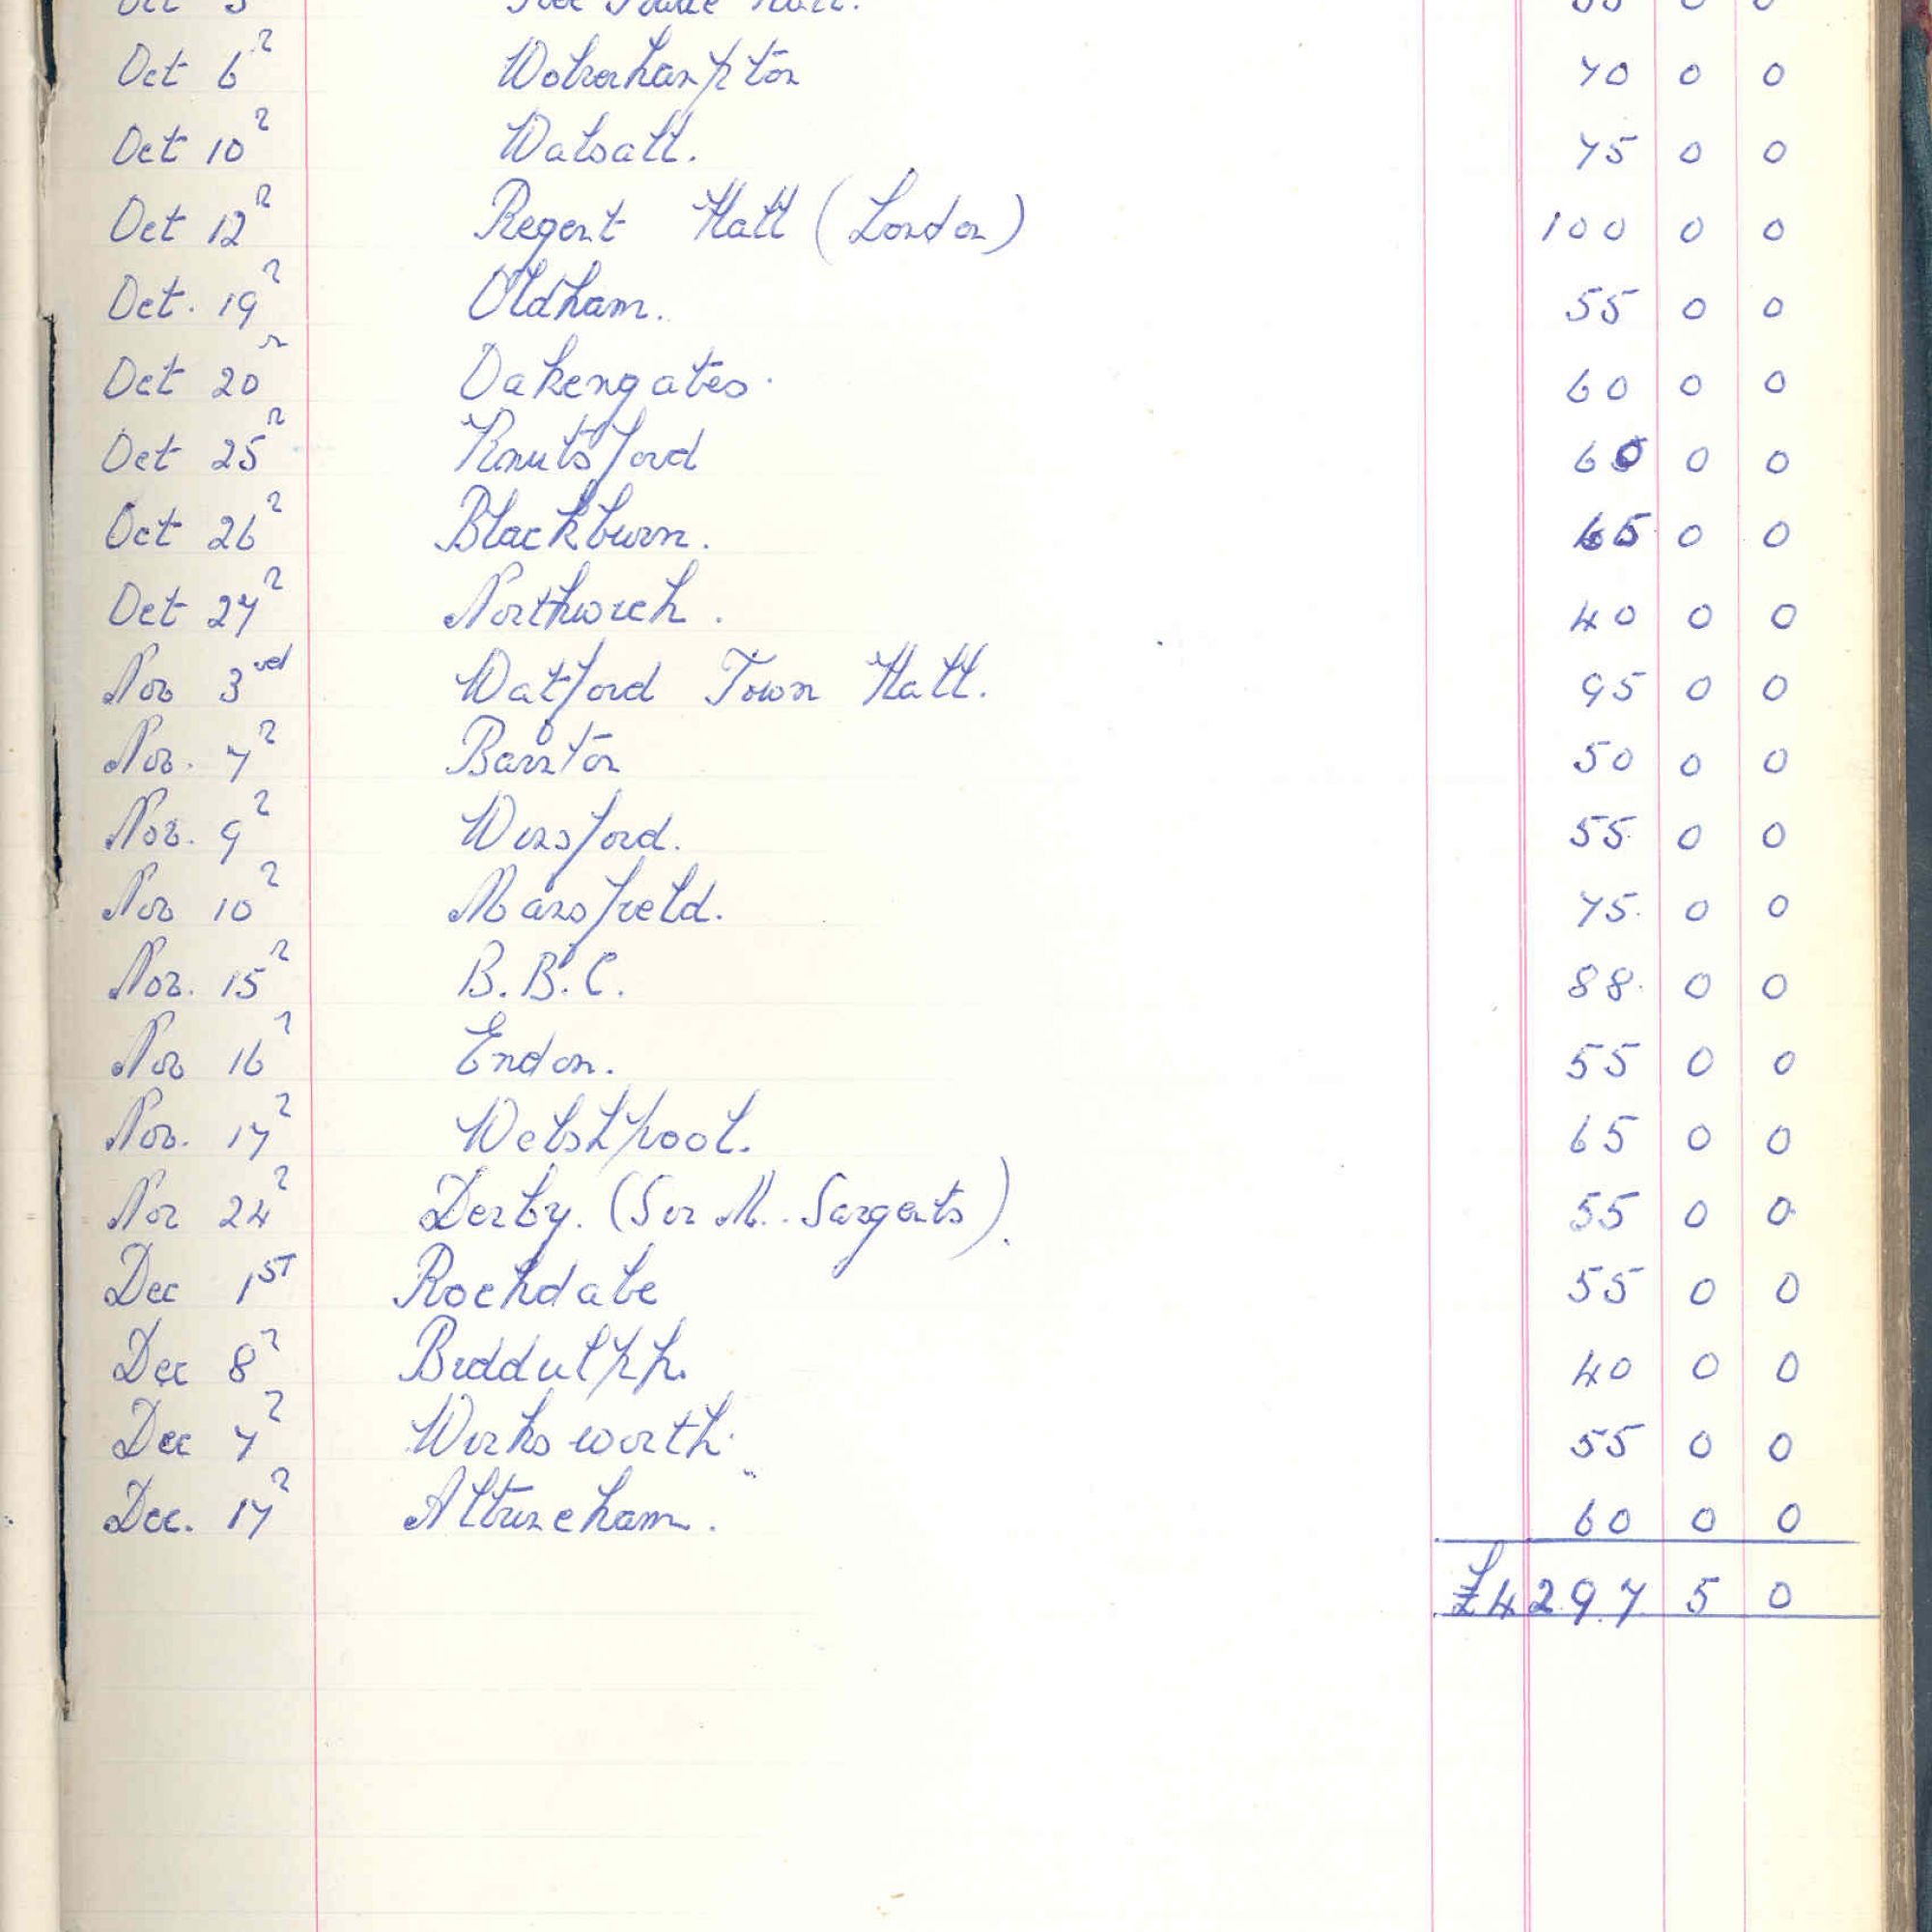 Free Trade Hall. 0 0
Oct 6th Wolverhampton 70 0 0
Oct 10th Walsall. 75 0 0
Oct 12th Regent Hall (London) 100 0 0
Oct. 19th Oldham. 55 0 0
Oct 20th Oakengates. 60 0 0
Oct 25th Knutsford 60 0 0
Oct 26th Blackburn. 65 0 0
Oct 27th Northwich. 40 0 0
Nov 3rd Watford Town Hall. 95 0 0
Nov. 7th Barnton 50 0 0
Nov. 9th Winsford. 55 0 0
Nov 10th Mansfield. 75 0 0
Nov. 15th B.B.C. 88 0 0
Nov 16th Endon. 55 0 0
Nov. 17th Welshpool. 65 0 0
Nov 24th Derby. (Sir M. Sargents). 55 0 0
Dec 1st Rochdale 55 0 0
Dec 8th Biddulph. 40 0 0
Dec 7th Wirksworth. 55 0 0
Dec. 17th Altrincham. 60 0 0
£4297 5 0